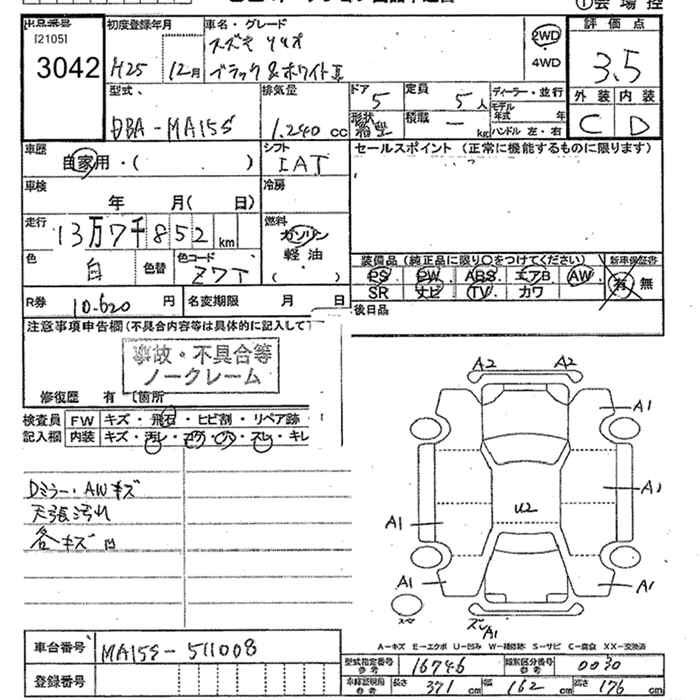 ①会場控
出品番号
[2105]
3042
初度登録年月
H25 12月
車名・グレード
スズキ ソリオ
ブラック&ホワイトⅡ
2WD
4WD
評価点
3.5
外装 内装
C D
型式
DBA-MA15S
排気量
1.240 cc
ドア
5
定員
5人
形状
積載
ー kg
ディーラー・並行
モデル年式 年
ハンドル 左・右
車歴
自家用・( )
シフト
IAT
セールスポイント (正常に機能するものに限ります)
車検
年 月( 日)
冷房
走行
13万7千852km
燃料
ガソリン
軽油
( )
色
白
色替
色コード
Z7T
装備品 (純正品に限り○をつけてください)
PS PW ABS エアB AW
SR ナビ TV カワ
新車保証書
有 無
R券
10.620 円
名変期限 月 日
後日品
注意事項申告欄(不具合内容等は具体的に記入して
事故・不具合等
ノークレーム
修復歴 有 [箇所
検査員記入欄
FW キズ・飛石・ヒビ割・リペア跡・
内装 キズ・汚レ・コゲ・穴・スレ・キレ
Dミラー・AWキズ
天張汚れ
各キズ凹
A2 A2
A1
A1
A1
U2
A1 A1
スレA1
A-キズ E-エクボ U-凹み W-補修跡 S-サビ C-腐食 XX-交換済
車台番号
MA15S-511008
登録番号
型式指定番号参考 16746
類別区分番号参考 0030
車検証明用参考 長さ 371 cm 幅 162 cm 高さ 176 cm